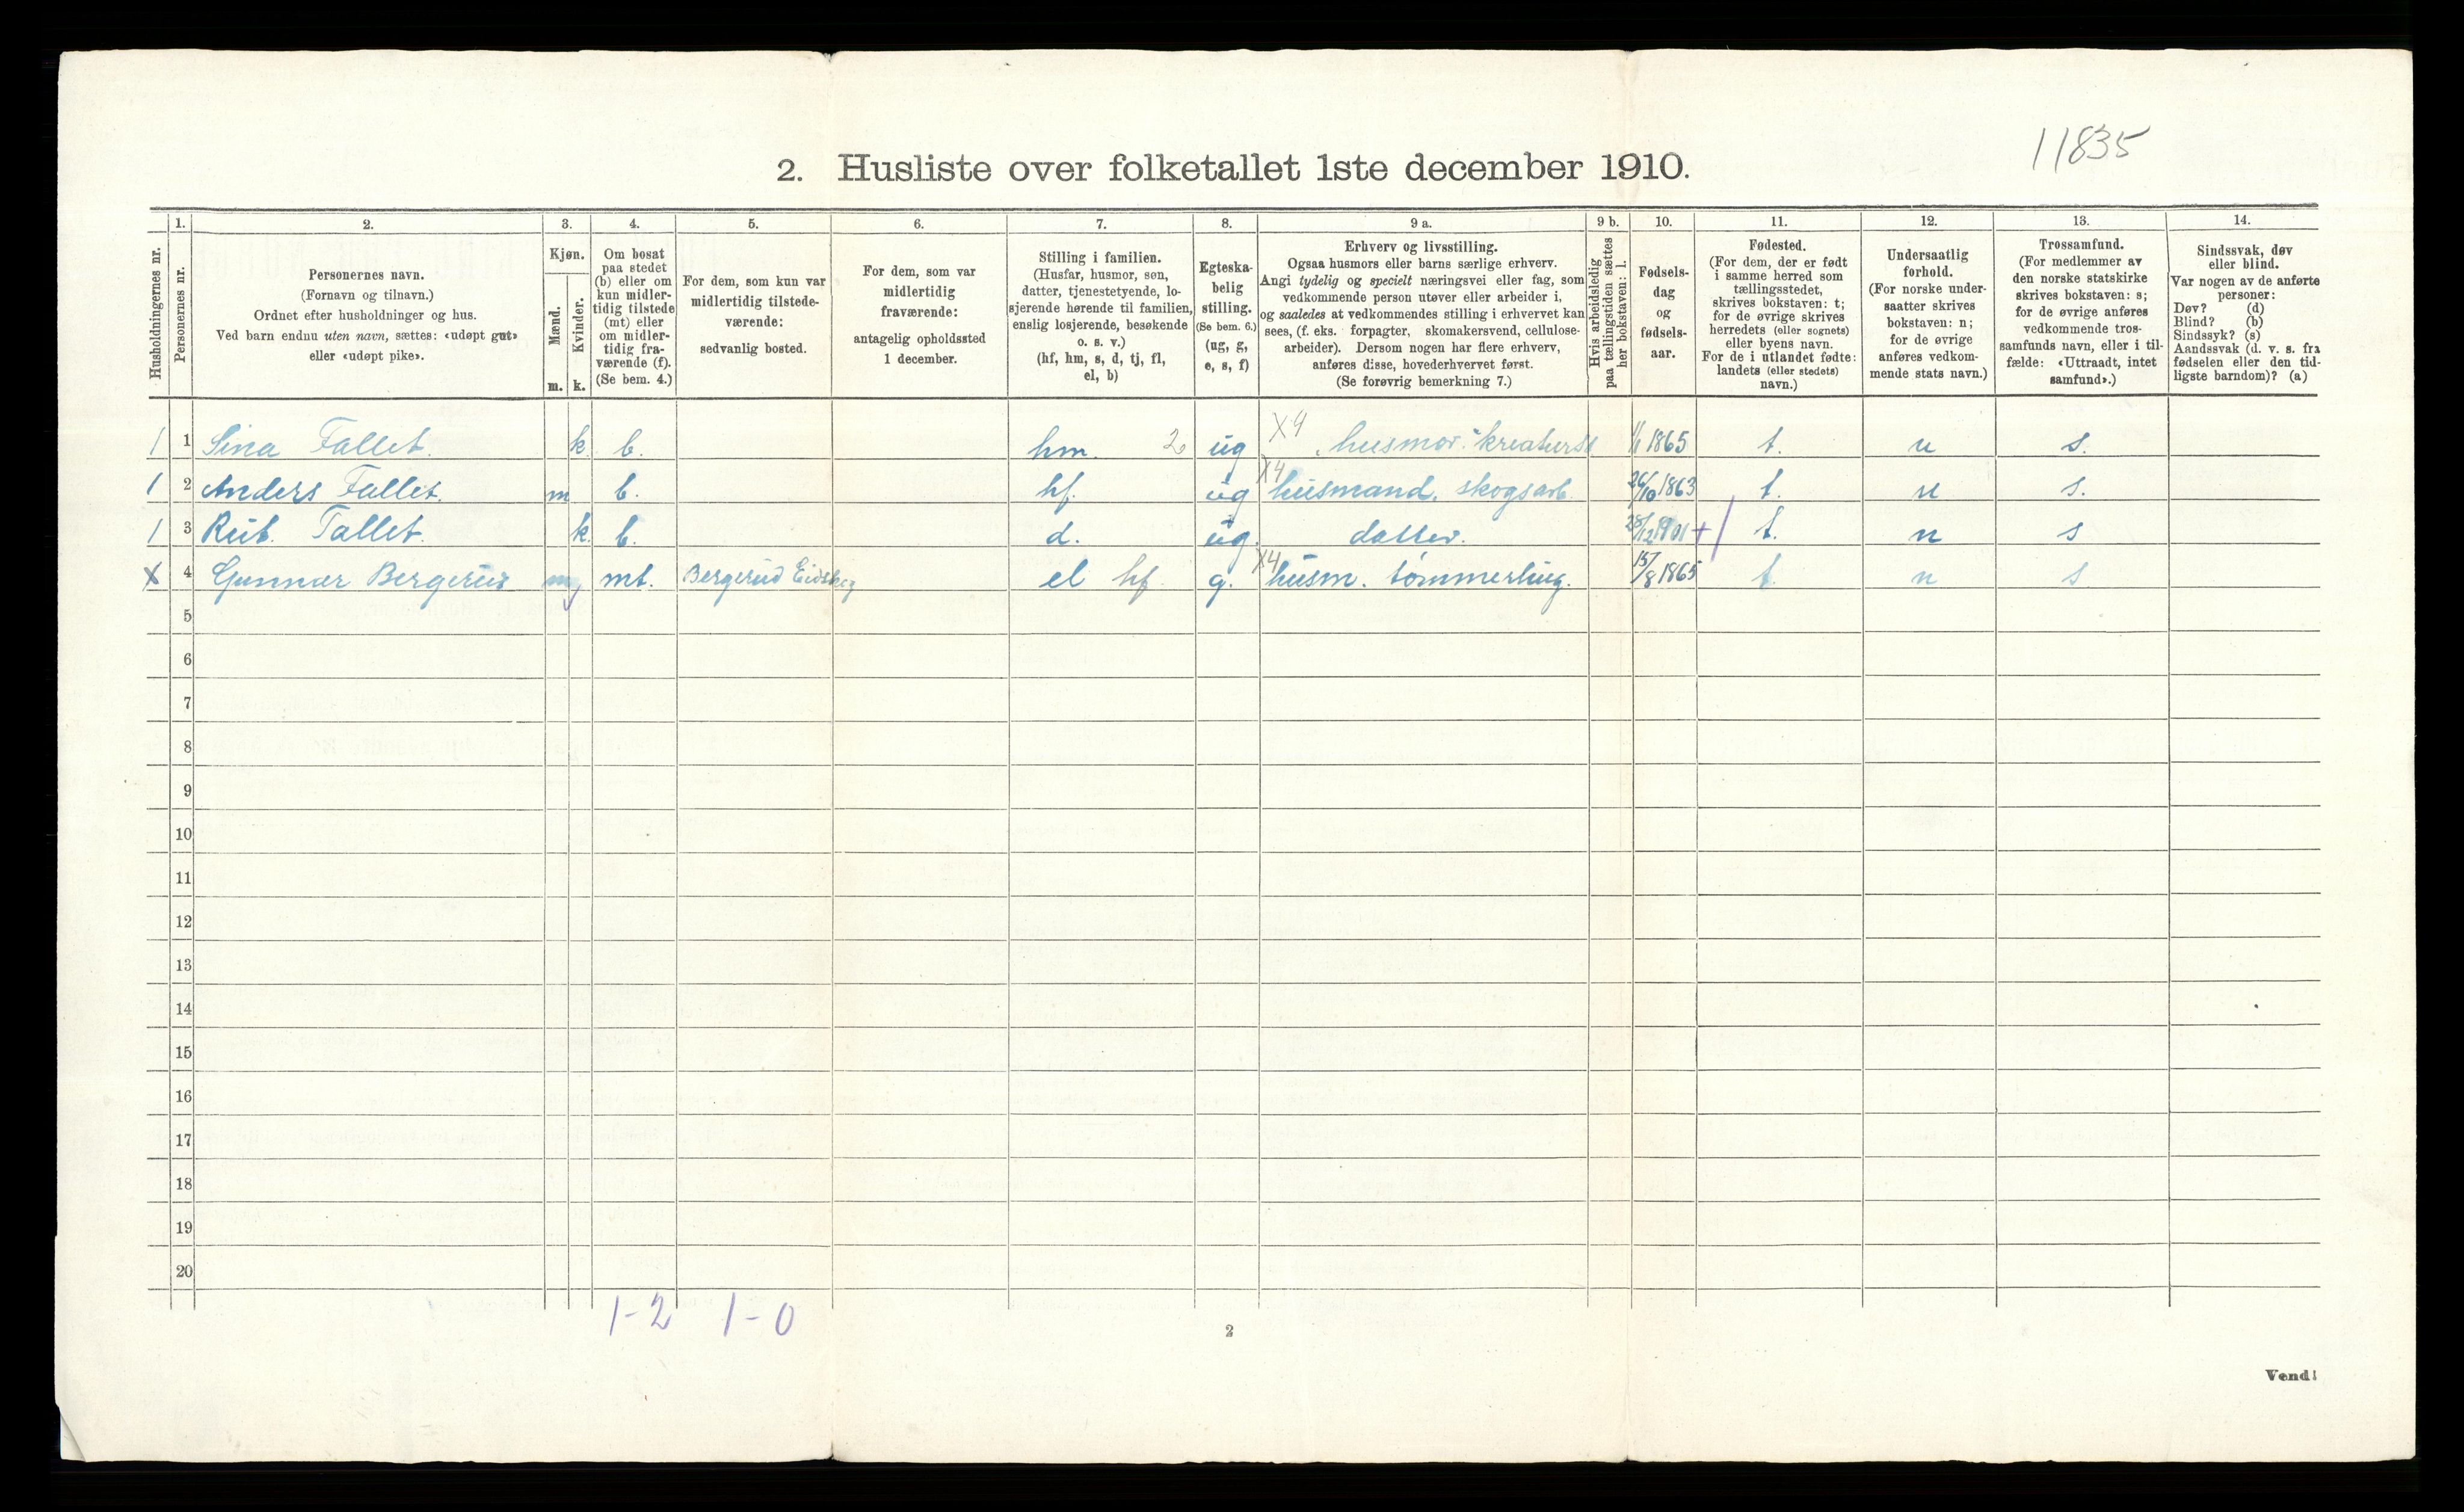 11835
2. Husliste over folketallet 1ste december 1910.
Husholdningernes nr.
1. Personernes nr.
2. Personernes navn.
(Fornavn og tilnavn.)
Ordnet efter husholdninger og hus.
Ved barn endnu uten navn, sættes: «udøpt gut»
eller «udøpt pike».
3. Kjøn.
Mænd. m.
Kvinder. k.
4. Om bosat
paa stedet
(b) eller om
kun midler-
tidig tilstede
(mt) eller
om midler-
tidig fra-
værende (f).
(Se bem. 4.)
5. For dem, som kun var
midlertidig tilstede-
værende:
sedvanlig bosted.
6. For dem, som var
midlertidig
fraværende:
antagelig opholdssted
1 december.
7. Stilling i familien.
(Husfar, husmor, søn,
datter, tjenestetyende, lo-
sjerende hørende til familien,
enslig losjerende, besøkende
o. s. v.)
(hf, hm, s, d, tj, fl,
el, b)
8. Egteska-
belig
stilling.
(Se bem. 6.)
(ug, g,
e, s, f)
9 a. Erhverv og livsstilling.
Ogsaa husmors eller barns særlige erhverv.
Angi tydelig og specielt næringsvei eller fag, som
vedkommende person utøver eller arbeider i,
og saaledes at vedkommendes stilling i erhvervet kan
sees, (f. eks. forpagter, skomakersvend, cellulose-
arbeider). Dersom nogen har flere erhverv,
anføres disse, hovederhvervet først.
(Se forøvrig bemerkning 7.)
9 b. Hvis arbeidsledig
paa tællingstiden sættes
her bokstaven: l.
10. Fødsels-
dag
og
fødsels-
aar.
11. Fødested.
(For dem, der er født
i samme herred som
tællingsstedet,
skrives bokstaven: t;
for de øvrige skrives
herredets (eller sognets)
eller byens navn.
For de i utlandet fødte:
landets (eller stedets)
navn.)
12. Undersaatlig
forhold.
(For norske under-
saatter skrives
bokstaven: n;
for de øvrige
anføres vedkom-
mende stats navn.)
13. Trossamfund.
(For medlemmer av
den norske statskirke
skrives bokstaven: s;
for de øvrige anføres
vedkommende tros-
samfunds navn, eller i til-
fælde: «Uttraadt, intet
samfund».)
14. Sindssvak, døv
eller blind.
Var nogen av de anførte
personer:
Døv? (d)
Blind? (b)
Sindssyk? (s)
Aandssvak (d. v. s. fra
fødselen eller den tid-
ligste barndom)? (a)
1 1 Sina Fallet. k. b. hm. 2 ug X4 husmor. kreaturst 1/1 1865 t. n s.
1 2 Anders Fallet. m b. hf. ug X4 husmand. skogsarb. 26/10 1863 t. n s.
1 3 Rut. Fallet. k. b. d. ug. datter. 25/12 1901 + t. n s
X 4 Gunnar Bergerud m mt. Bergerud Eidskog el hf. g. X4 husm. tømmerhug. 15/8 1865 t. n s
5
6
7
8
9
10
11
12
13
14
15
16
17
18
19
20
1-2 1-0
2
Vend!